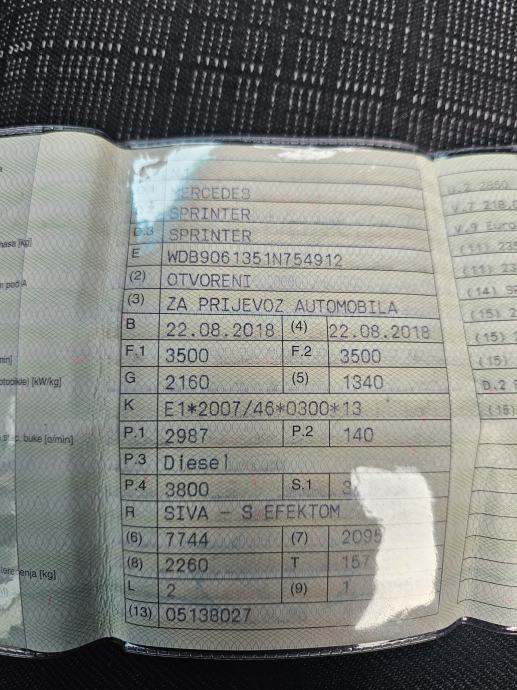 MERCEDES
SPRINTER
D.3 SPRINTER
E WDB9061351N754912
(2) OTVORENI
(3) ZA PRIJEVOZ AUTOMOBILA
B 22.08.2018 (4) 22.08.2018
F.1 3500 F.2 3500
G 2160 (5) 1340
K E1*2007/46*0300*13
P.1 2987 P.2 140
P.3 Diesel
P.4 3800 S.1 3
R SIVA - S EFEKTOM
(6) 7744 (7) 2095
(8) 2260 T 157
L 2 (9) 1
(13) 05138027
[kg]
pod A
[kW/kg]
buke [o/min]
[kg]
U.2 2850
V.7 218.
V.9 Euro
(11) 235
(11) 235
(14)
(15)
(15)
(15)
D.2
(16)